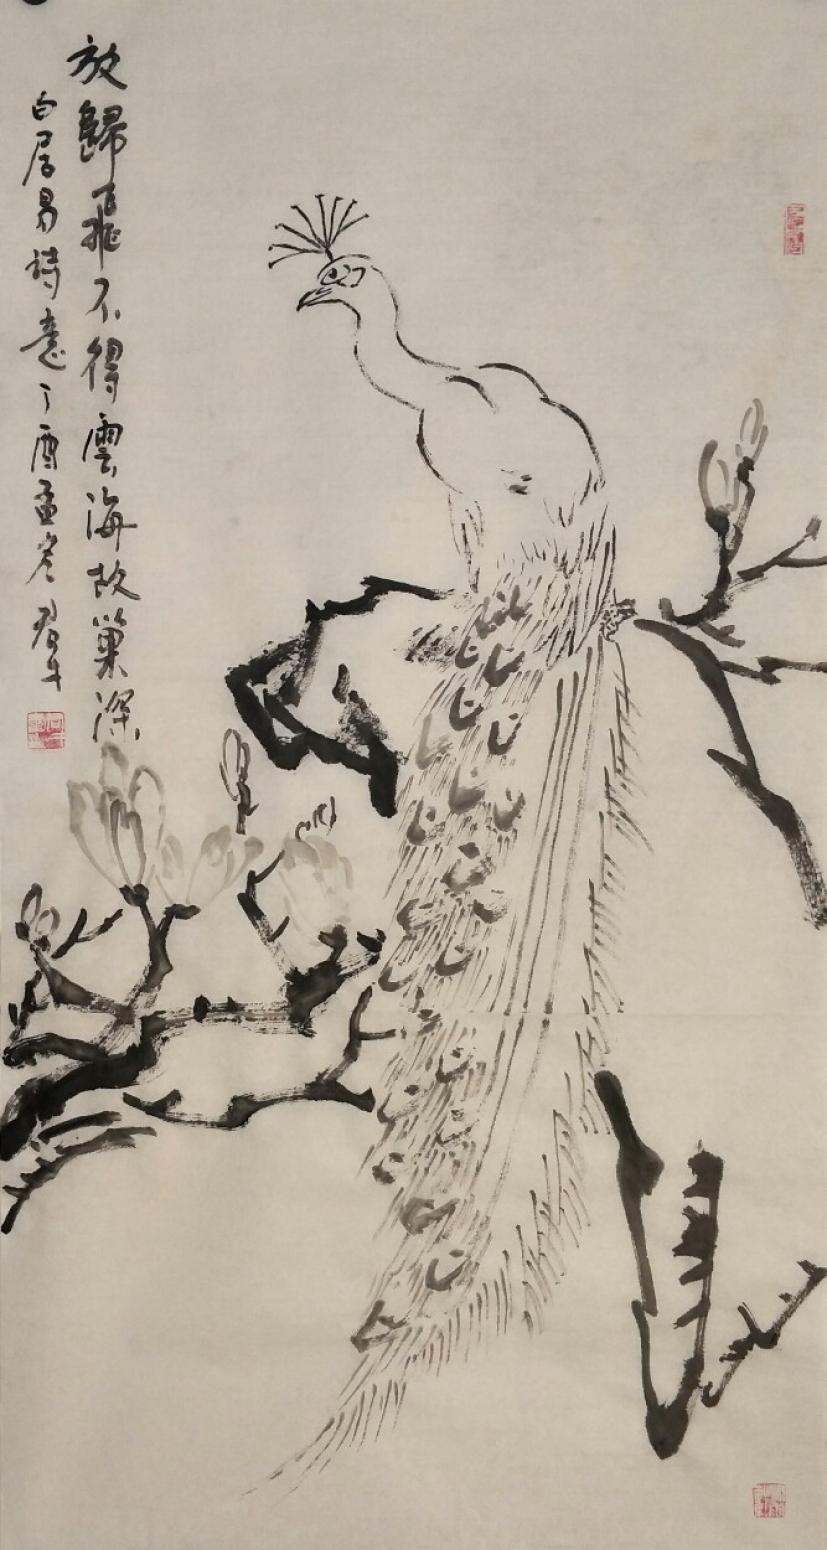 放歸飛不得雲海故巢深
白居易詩意丁酉孟冬